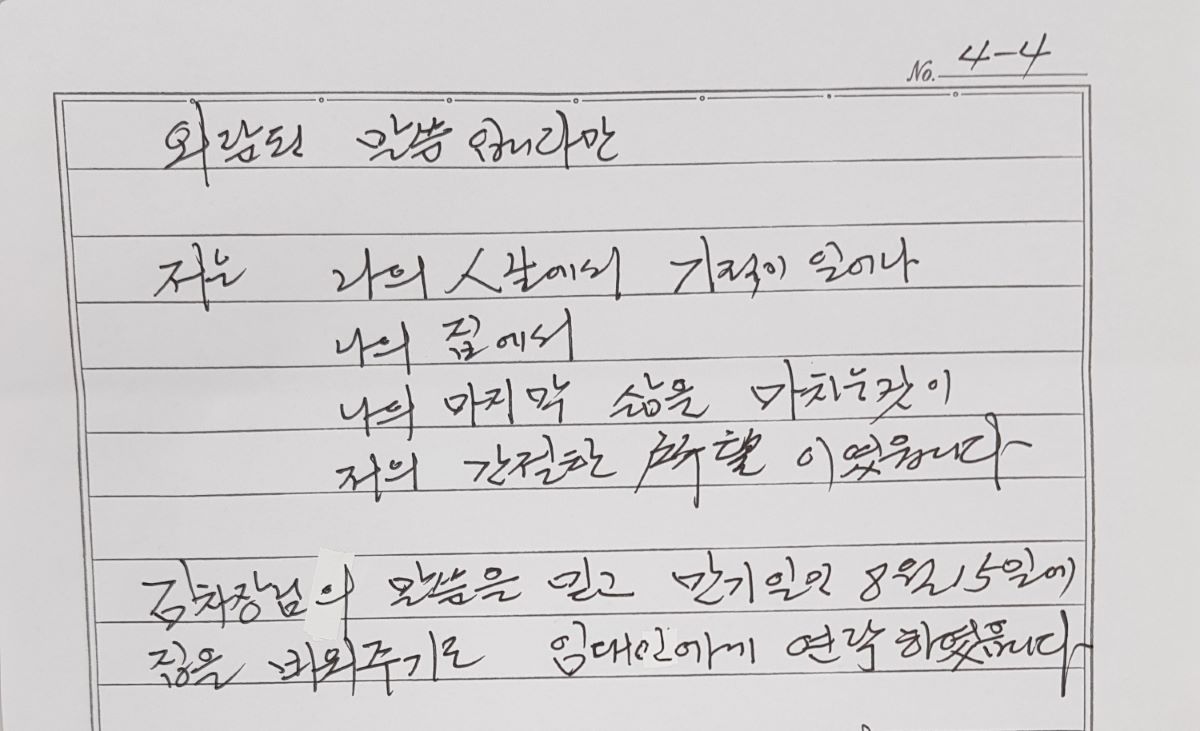 No. 4-4
외람된 말씀 입니다만
저는 나의 人生에서 기적이 일어나
나의 집에서
나의 마지막 삶을 마치는것이
저의 간절한 所望 이였읍니다
김차장님의 말씀을 믿고 만기일인 8월15일에
집을 비워주기로 임대인에게 연락 하였읍니다